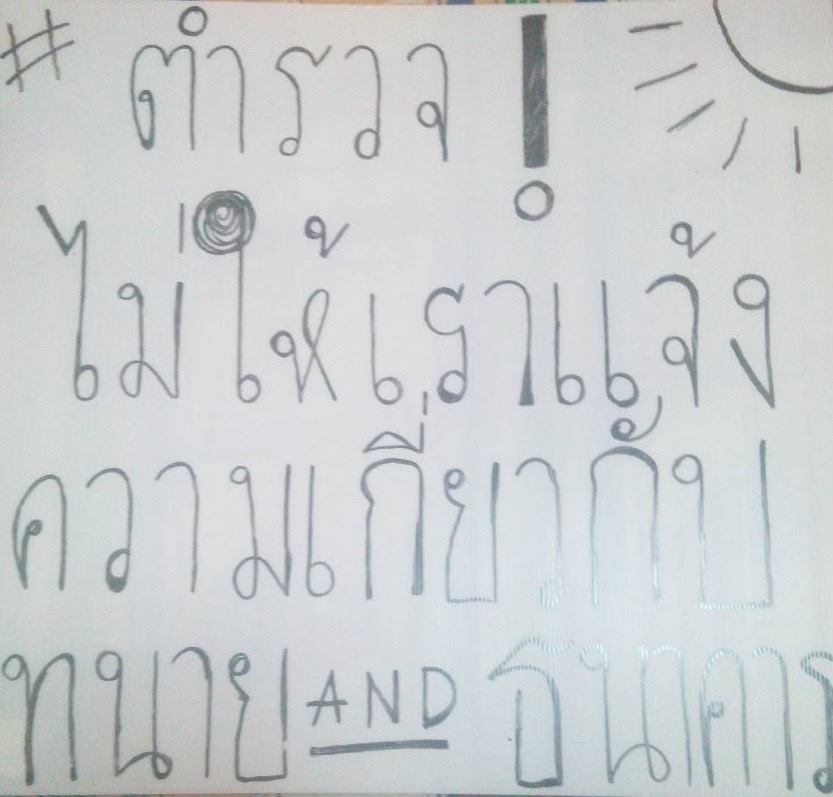 # ตำรวจ!
ไม่ให้เราแจ้ง
ความเกี่ยวกับ
ทนาย AND ธนาคาร